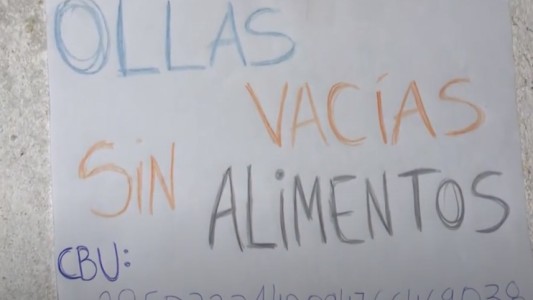 OLLAS
VACÍAS
SiN ALiMENTOS
CBU: